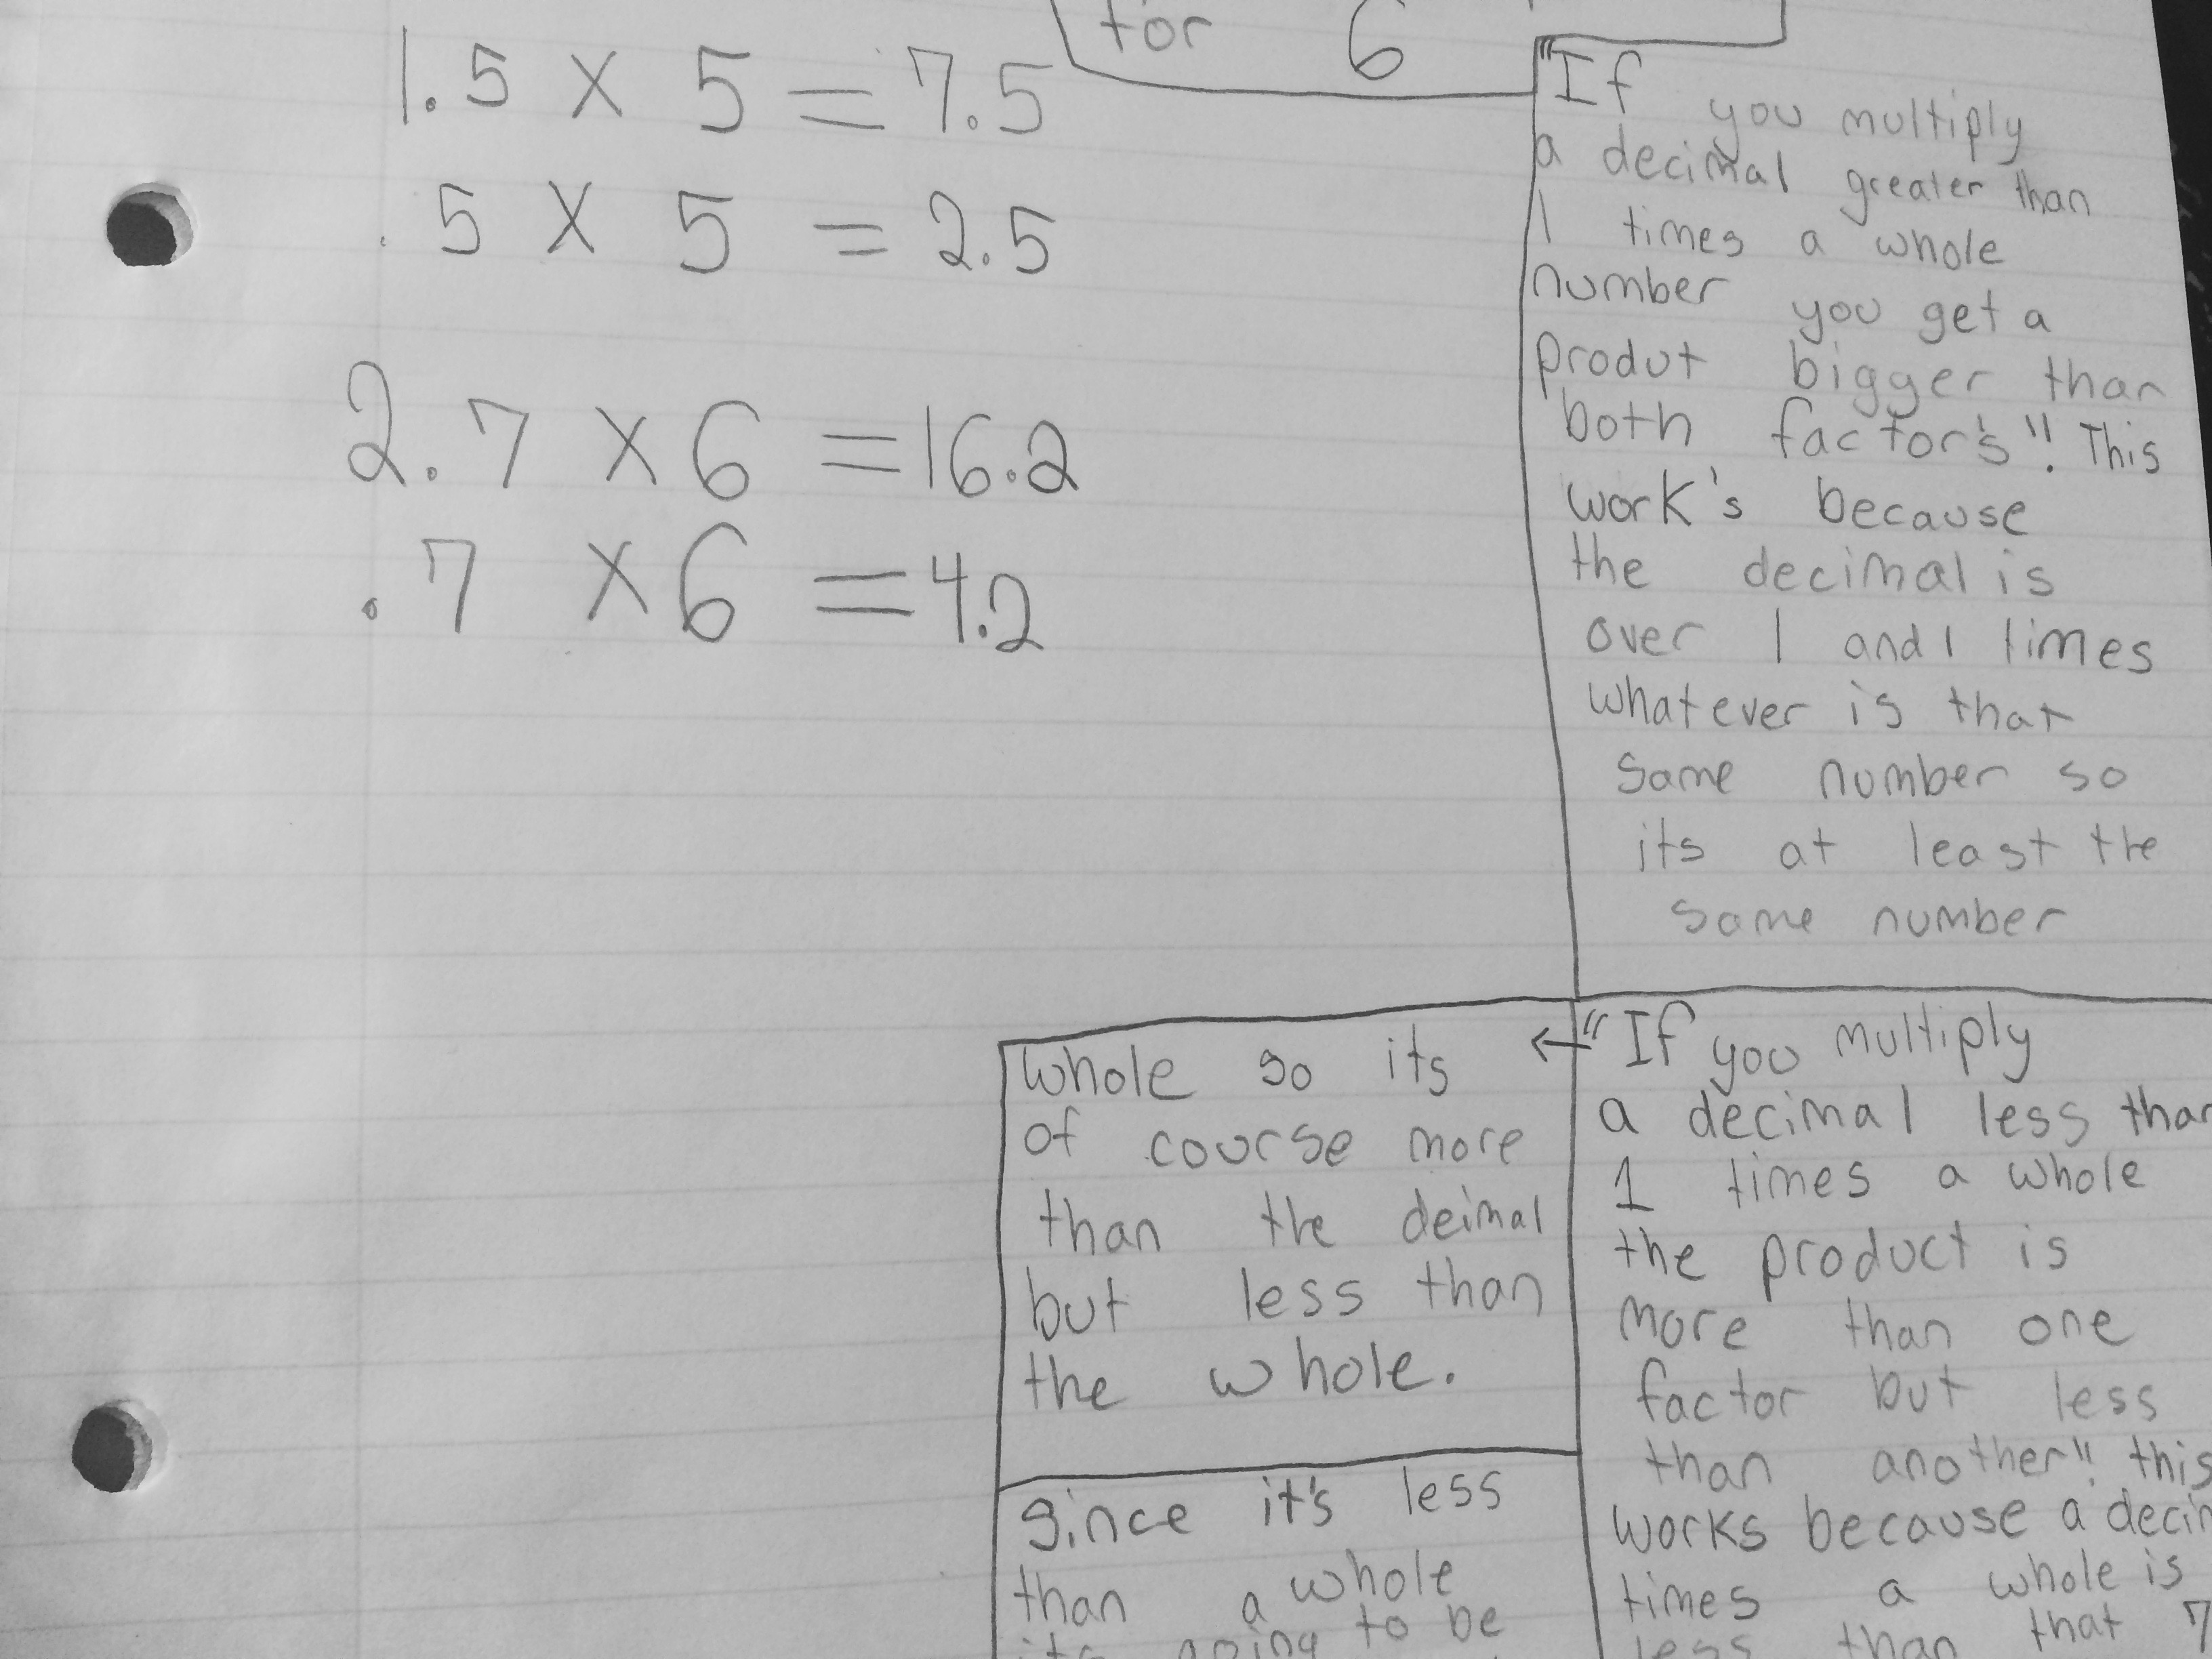 for 6
1.5 X 5 = 7.5
.5 X 5 = 2.5
2.7 X 6 = 16.2
.7 X 6 = 4.2
"If you multiply
a decimal greater than
1 times a whole
number you get a
produt bigger than
both factor's". This
work's because
the decimal is
over 1 and 1 times
whatever is that
same number so
its at least the
same number
← "If you multiply
a decimal less than
1 times a whole
the product is
more than one
factor but less
than another". this
works because a
times a whole is
less than that
whole so its
of course more
than the deimal
but less than
the whole.
since it's less
than a whole
its going to be